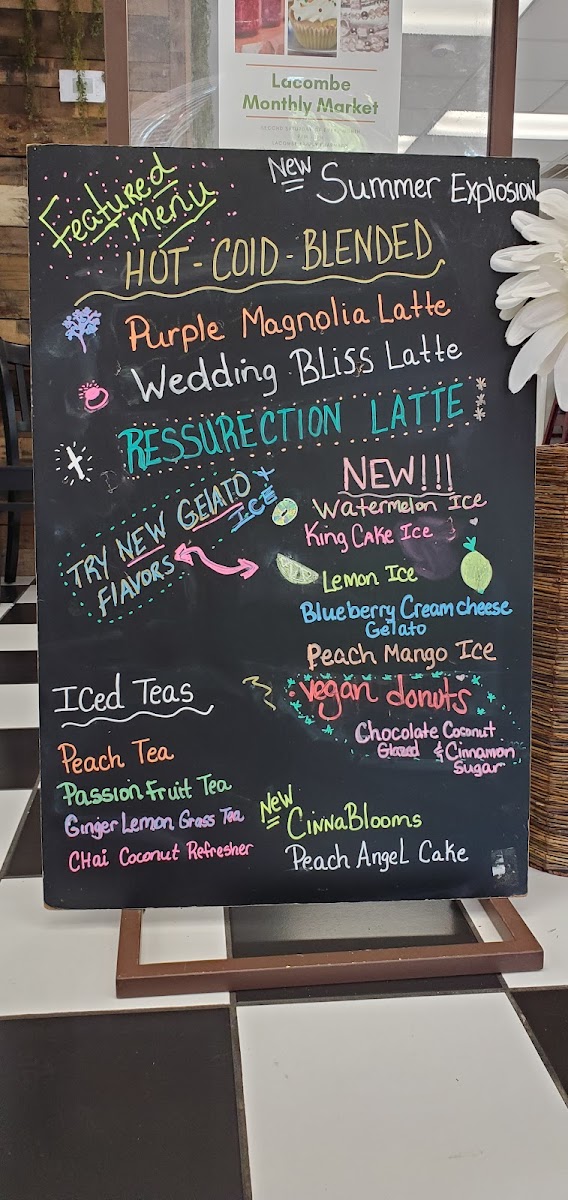 Lacombe
Monthly Market
Featured
Menu
New Summer Explosion
HOT - COLD - BLENDED
Purple Magnolia Latte
Wedding BLiss Latte
RESSURECTION LATTE
TRY NEW GELATO +
ICE
FLAVORS
NEW!!!
Watermelon Ice
King Cake Ice
Lemon Ice
Blueberry Creamcheese
Gelato
Peach Mango Ice
Iced Teas
Peach Tea
Passion Fruit Tea
Ginger Lemon Grass Tea
CHai Coconut Refresher
Vegan donuts
Chocolate Coconut
Glazed & Cinnamon
Sugar
New
CinnaBlooms
Peach Angel Cake